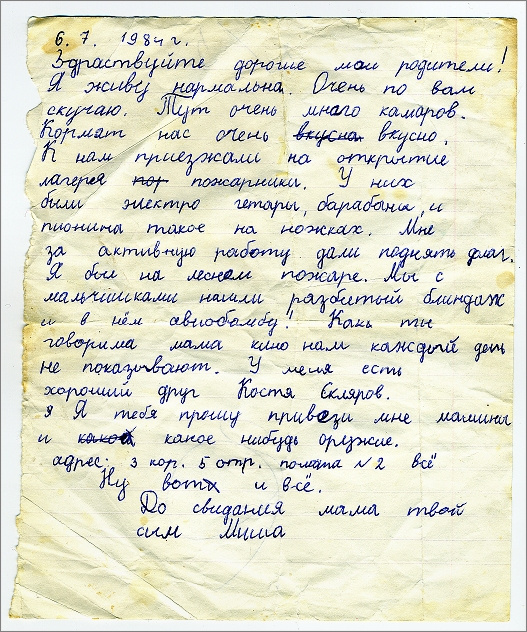 6. 7. 1984 г.
Здраствуйте дорогие маи родители!
Я живу нармальна. Очень по вам
скучаю. Тут очень много камаров.
Кормат нас очень вкусна вкусно.
К нам приезжали на открытие
лагеря пор пожарники. У них
были электро гетары, барабаны, и
пионина такое на ножках. Мне
за активную работу дали поднять флаг.
Я был на лесном пожаре. Мы с
мальчишками нашли разбитый блиндаж
и в нём авиобомбу! Кань ты
говорила мама кино нам каждый день
не показывают. У меня есть
хороший друг Костя Скляров.
Я тебя прошу привези мне машины
и какое нибудь оружие.
адрес: 3 кор. 5 отр. полата №2 всё
Ну вот и всё.
До свидания мама твой
син Миша